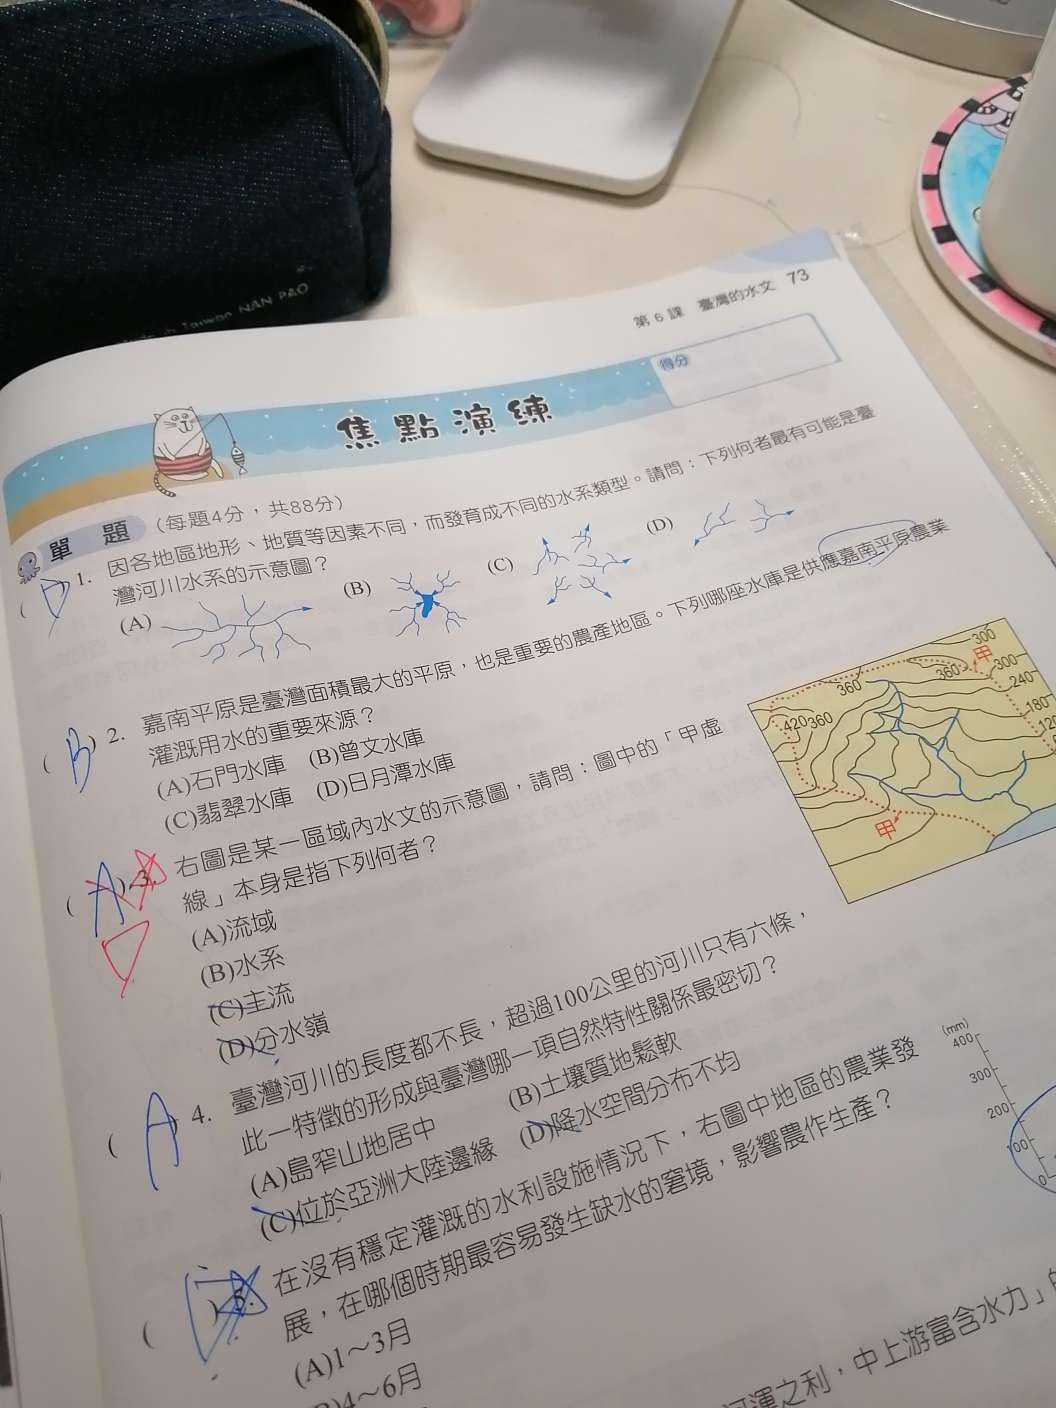 NAN PAO
第6課 臺灣的水文 73
得分
焦點演練
單題 (每題4分,共88分)
D
1. 因各地區地形、地質等因素不同,而發育成不同的水系類型。請問:下列何者最有可能是臺
灣河川水系的示意圖?
(A) (B) (C) (D)
B
( ) 2. 嘉南平原是臺灣面積最大的平原,也是重要的農產地區。下列哪座水庫是供應嘉南平原農業
灌溉用水的重要來源?
(A)石門水庫 (B)曾文水庫
(C)翡翠水庫 (D)日月潭水庫
A
D
( ) 3. 右圖是某一區域內水文的示意圖,請問:圖中的「甲虛
線」本身是指下列何者?
(A)流域
(B)水系
(C)主流
(D)分水嶺
300
甲
360
360
300
240
180
420
360
甲
A
( ) 4. 臺灣河川的長度都不長,超過100公里的河川只有六條,
此一特徵的形成與臺灣哪一項自然特性關係最密切?
(A)島窄山地居中 (B)土壤質地鬆軟
(C)位於亞洲大陸邊緣 (D)降水空間分布不均
( ) 5. 在沒有穩定灌溉的水利設施情況下,右圖中地區的農業發
展,在哪個時期最容易發生缺水的窘境,影響農作生產?
(A)1~3月
4~6月
(mm)
400
300
200
100
0
河運之利,中上游富含水力」